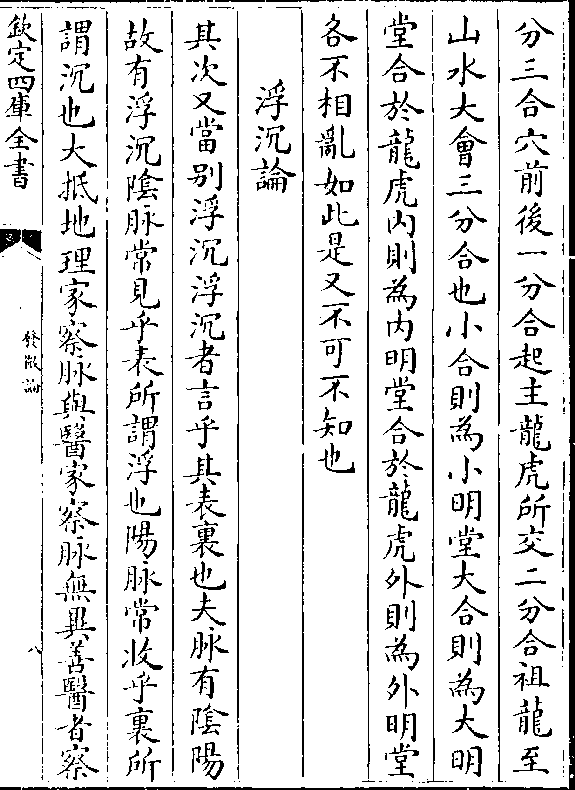 分三合穴前後一分合起主龍虎所交二分合祖龍至
山水大會三分合也小合則為小明堂大合則為大明
堂合於龍虎内則為内明堂合於龍虎外則為外明堂
各不相亂如此是又不可不知也
浮沉論
其次又當别浮沉浮沉者言乎其表裏也夫脉有陰陽
故有浮沉陰脉常見乎表所謂浮也陽脉常收乎裏所
謂沉也大抵地理家察脉與醫家察脉無異善醫者察
欽定四庫全書
發微論
八